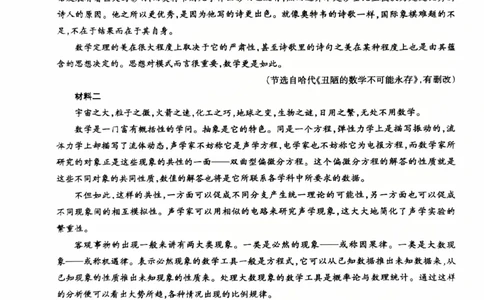 诗人的原因。他之所以更优秀，是因为他写的诗更出色。就像奥特韦的诗歌一样，国际象棋难题的不
足，不在于结果而在于其自身。
数学定理的美在很大程度上取决于它的严肃性，甚至诗歌里的诗句之美在某种程度上也是由其蕴
含的思想决定的。思想对模式而言很重要，数学更是如此。
（节选自哈代《丑陋的数学不可能永存》，有删改）
材料二
宇宙之大，粒子之微，火箭之速，化工之巧，地球之变，生物之谜，日用之繁，无处不用数学。
数学是一门富有概括性的学问。抽象是它的特色。同是一个方程，弹性力学上是描写振动的，流
体力学上却描写了流体动态，声学家不妨称它是声学方程，电学家也不妨称它为电报方程，而数学家所
研究的对象正是这些现象的共性的一面——双曲型偏微分方程。这个偏微分方程的解答的性质就是
这些不同对象的共同性质，数值的解答也将是它所联系各学科中所要求的数据。
不但如此，这样的共性，一方面可以促成不同分支产生统一理论的可能性，另一方面也可以促成
不同现象间的相互模拟性。声学家可以用相似的电路来研究声学现象，这大大地简化了声学实验的
繁重性。
客观事物的出现一般来讲有两大类现象。一类是必然的现象——或称因果律。一类是大数现
象——或称机遇律。表示必然现象的数学工具一般是方程式，它可以从已知数据推出未知数据来，从
已知现象的性质推出未知现象的性质来。处理大数现象的数学工具是概率论与数理统计。通过这样
的分析便可以看出大势所趋，各种情况出现的比例规律。